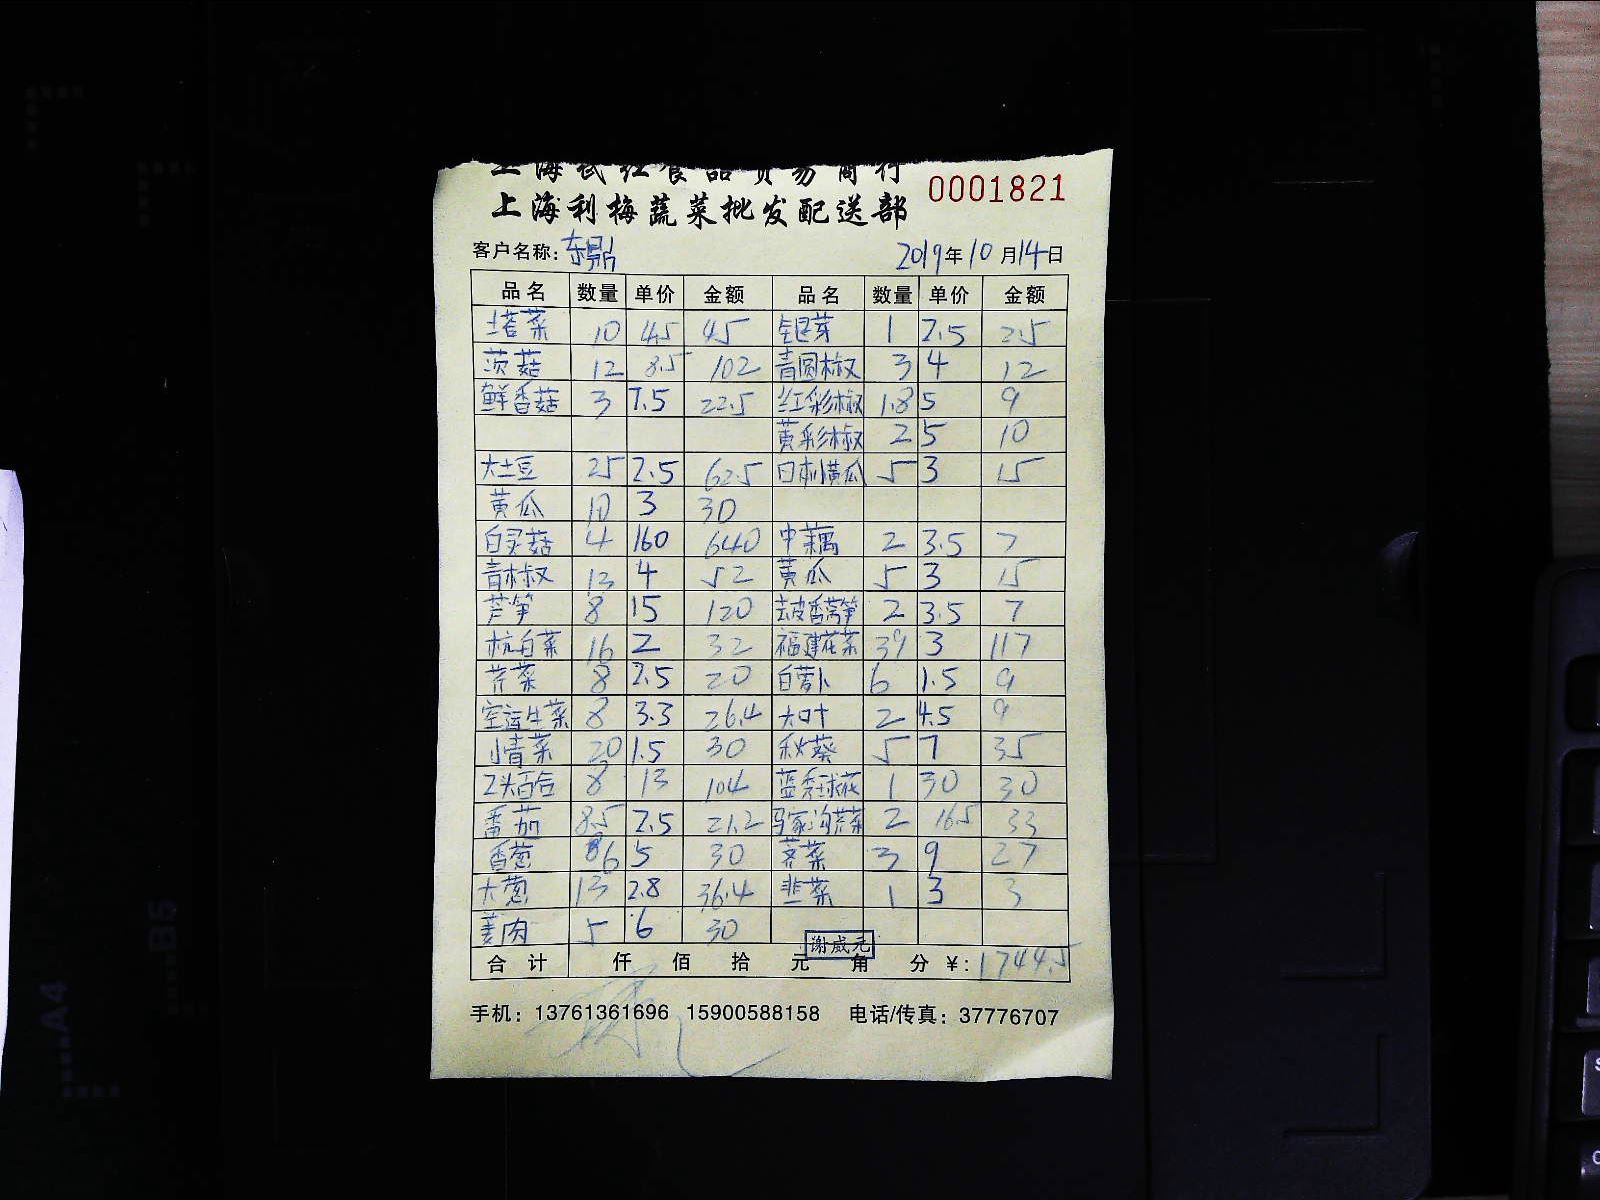 上海利梅蔬菜批发配送部 0001821
客户名称: 东鼎 2019年10月14日
品名 数量 单价 金额 品名 数量 单价 金额
塔菜 10 4.5 45 银芽 1 2.5 2.5
茨菇 12 8.5 102 青圆椒 3 4 12
鲜香菇 3 7.5 22.5 红彩椒 1.8 5 9
黄彩椒 2 5 10
大土豆 25 2.5 62.5 日本小黄瓜 5 3 15
黄瓜 10 3 30
白灵菇 4 160 640 中藕 2 3.5 7
青椒 13 4 52 黄瓜 5 3 15
芦笋 8 15 120 去皮香莴笋 2 3.5 7
杭白菜 16 2 32 福建花菜 39 3 117
芹菜 8 2.5 20 白萝卜 6 1.5 9
空运生菜 8 3.3 26.4 大叶 2 4.5 9
小青菜 20 1.5 30 秋葵 5 7 35
2头百合 8 13 104 蓝秀球花 1 30 30
番茄 8.5 2.5 21.2 马家沟芹菜 2 16.5 33
香葱 6 5 30 荠菜 3 9 27
大葱 13 2.8 36.4 韭菜 1 3 3
姜肉 5 6 30
谢威元
合计 仟 佰 拾 元 角 分 ¥: 1744.5
手机: 13761361696 15900588158 电话/传真: 37776707